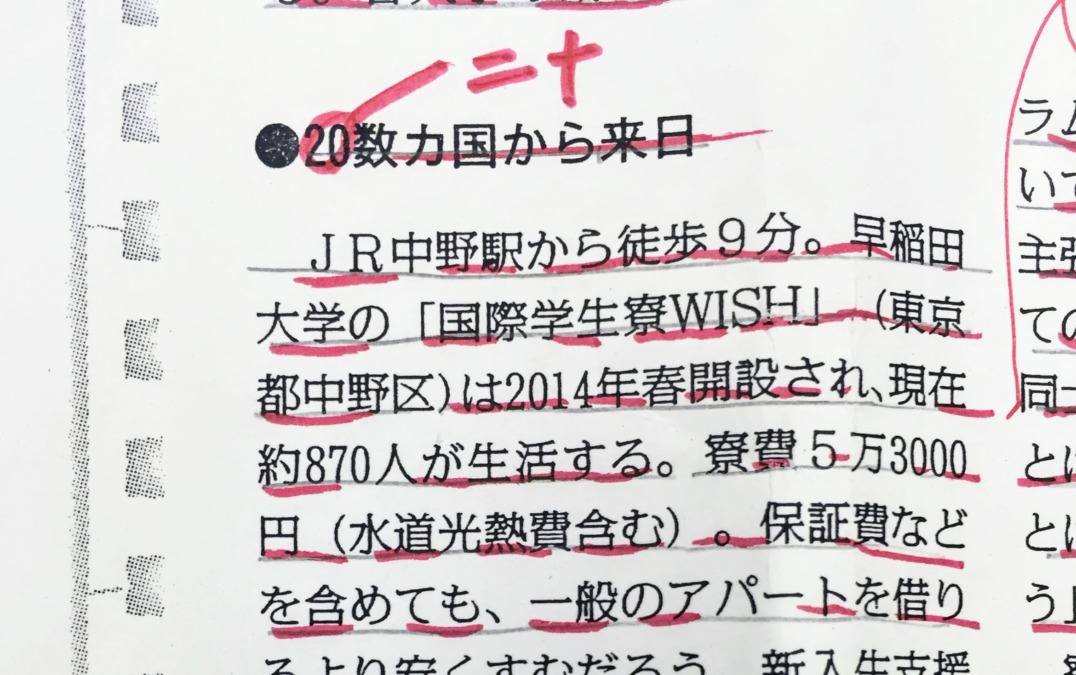 二十
●20数カ国から来日
JR中野駅から徒歩9分。早稲田
大学の「国際学生寮WISH」（東京
都中野区）は2014年春開設され、現在
約870人が生活する。寮費5万3000
円（水道光熱費含む）。保証費など
を含めても、一般のアパートを借り
るより安くすむだろう。新入生支援
ラム
いて
主張
ての
同一
とに
とに
う